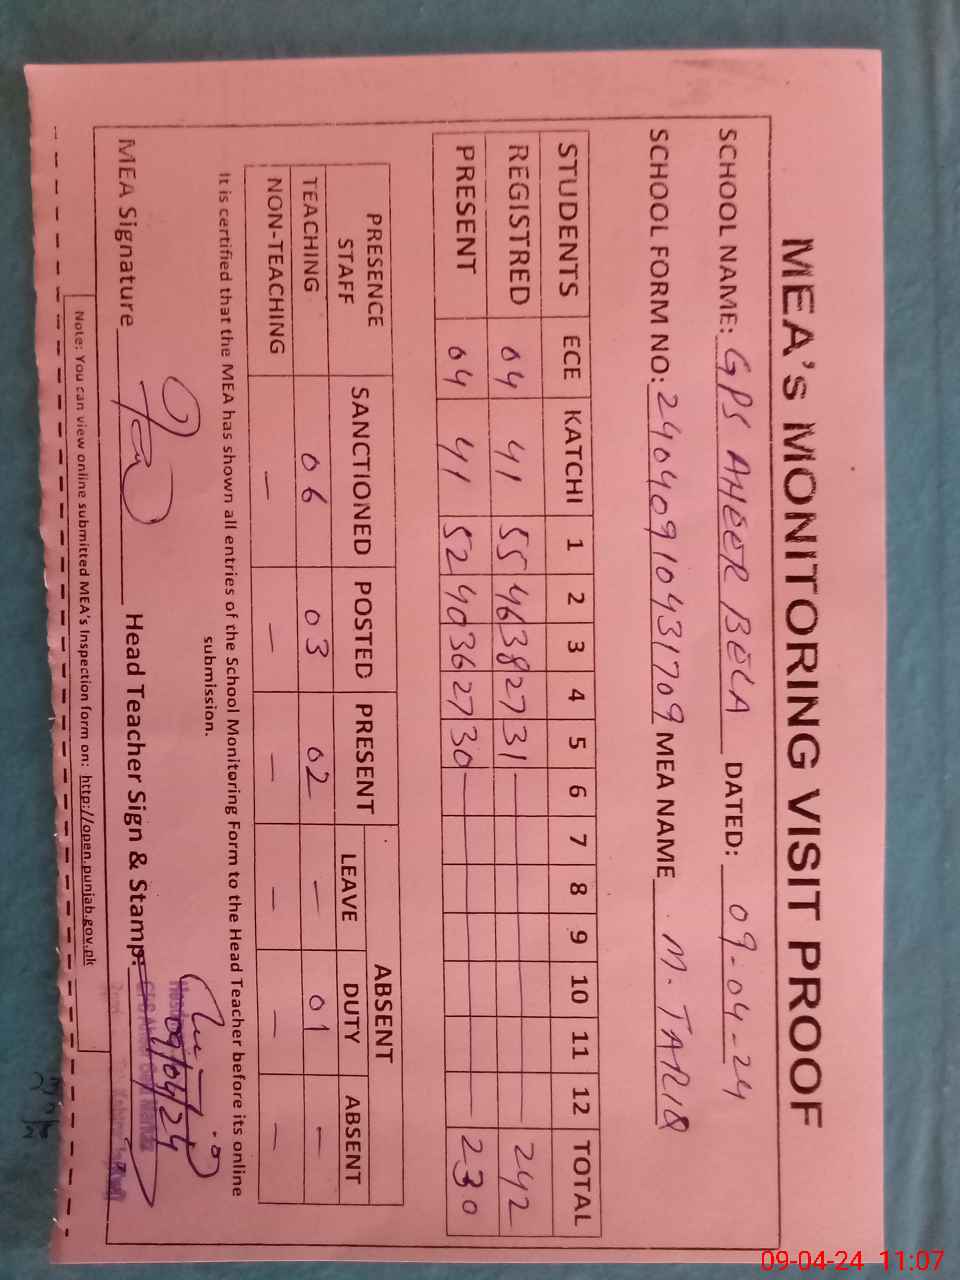 MEA's MONITORING VISIT PROOF
SCHOOL NAME: GPS AHEER BELA DATED: 09-04-24
SCHOOL FORM NO: 24040910431709 MEA NAME M. TARIQ
STUDENTS ECE KATCHI 1 2 3 4 5 6 7 8 9 10 11 12 TOTAL
REGISTRED 04 41 55 46 38 27 31 242
PRESENT 04 41 52 40 36 27 30 230
PRESENCE STAFF SANCTIONED POSTED PRESENT ABSENT
LEAVE DUTY ABSENT
TEACHING 06 03 02 — 01 —
NON-TEACHING — — — — — —
It is certified that the MEA has shown all entries of the School Monitoring Form to the Head Teacher before its online
submission.
MEA Signature Head Teacher Sign & Stamp:
09/04/24
Note: You can view online submitted MEA's Inspection form on: http://open.punjab.gov.pk
09-04-24 11:07